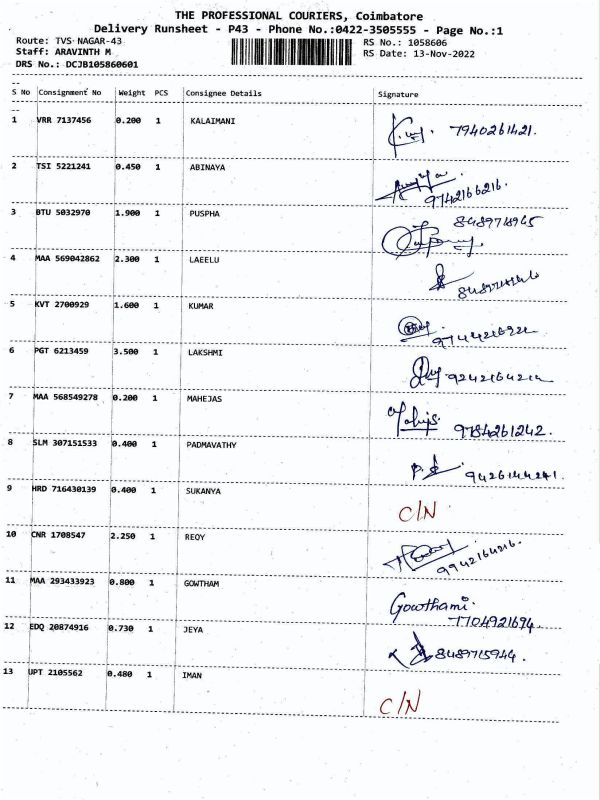 THE PROFESSIONAL COURIERS, Coimbatore
Delivery Runsheet - P43 - Phone No.:0422-3505555 - Page No.:1
Route: TVS NAGAR-43 RS No.: 1058606
Staff: ARAVINTH M RS Date: 13-Nov-2022
DRS No.: DCJB105860601
S No Consignment No Weight PCS Consignee Details Signature
1 VRR 7137456 0.200 1 KALAIMANI 7940261421.
2 TSI 5221241 0.450 1 ABINAYA 9742166216.
3 BTU 5032970 1.900 1 PUSPHA
4 MAA 569042862 2.300 1 LAEELU
5 KVT 2700929 1.600 1 KUMAR
6 PGT 6213459 3.500 1 LAKSHMI
7 MAA 568549278 0.200 1 MAHEJAS 9784261242.
8 SLM 307151533 0.400 1 PADMAVATHY
9 HRD 716430139 0.400 1 SUKANYA C/N
10 CNR 1708547 2.250 1 REOY 9942164216.
11 MAA 293433923 0.800 1 GOWTHAM Gowthami
7704921694.
12 EDQ 20874916 0.730 1 JEYA 8489715944.
13 UPT 2105562 0.480 1 IMAN C/N